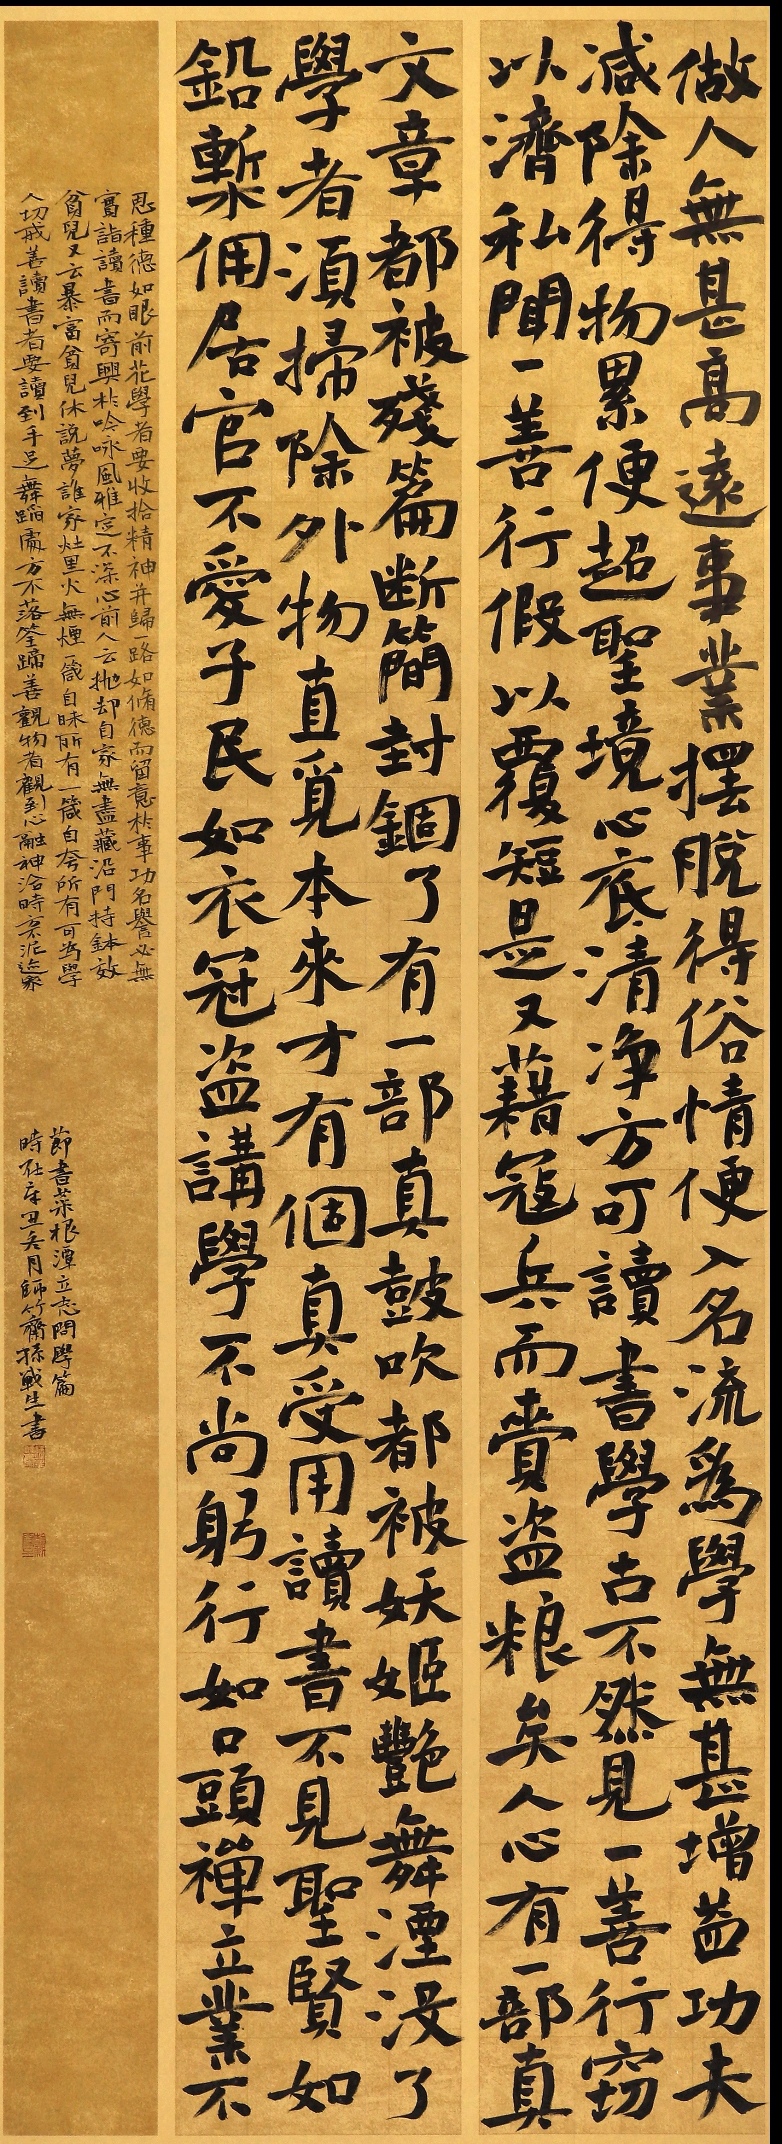 做人無甚高遠事業擺脫得俗情便入名流為學無甚增益功夫
減除得物累便超聖境心底清淨方可讀書學古不然見一善行竊
以濟私聞一善行假以覆短是又藉寇兵而賫盜粮矣人心有一部真
文章都被殘篇断簡封錮了有一部真鼓吹都被妖姬艷舞湮沒了
學者須掃除外物直覓本來才有個真受用讀書不見聖賢如
鉛槧佣居官不愛子民如衣冠盜講學不尚躬行如口頭禪立業不
思種德如眼前花學者要收拾精神并歸一路如脩德而留意於事功名譽必無
實詣讀書而寄興於吟咏風雅定不深心前人云抛却自家無盡藏沿門持鉢效
貧兒又云暴富貧兒休說夢誰家灶里火無煙一箴自昧所有一箴自夸所有可為學
人切戒善讀書者要讀到手足舞蹈處方不落筌蹄善觀物者觀到心融神洽時方不泥迹象
節書菜根潭立志問學篇
時在辛丑冬月師竹齋孫戰生書